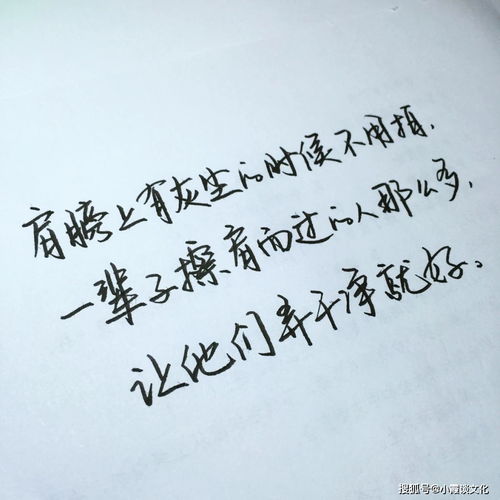 肩膀上有灰尘的时候不用拍，
一辈子擦肩而过的人那么多，
让他们弄干净就好。
搜狐号@小霞谈文化